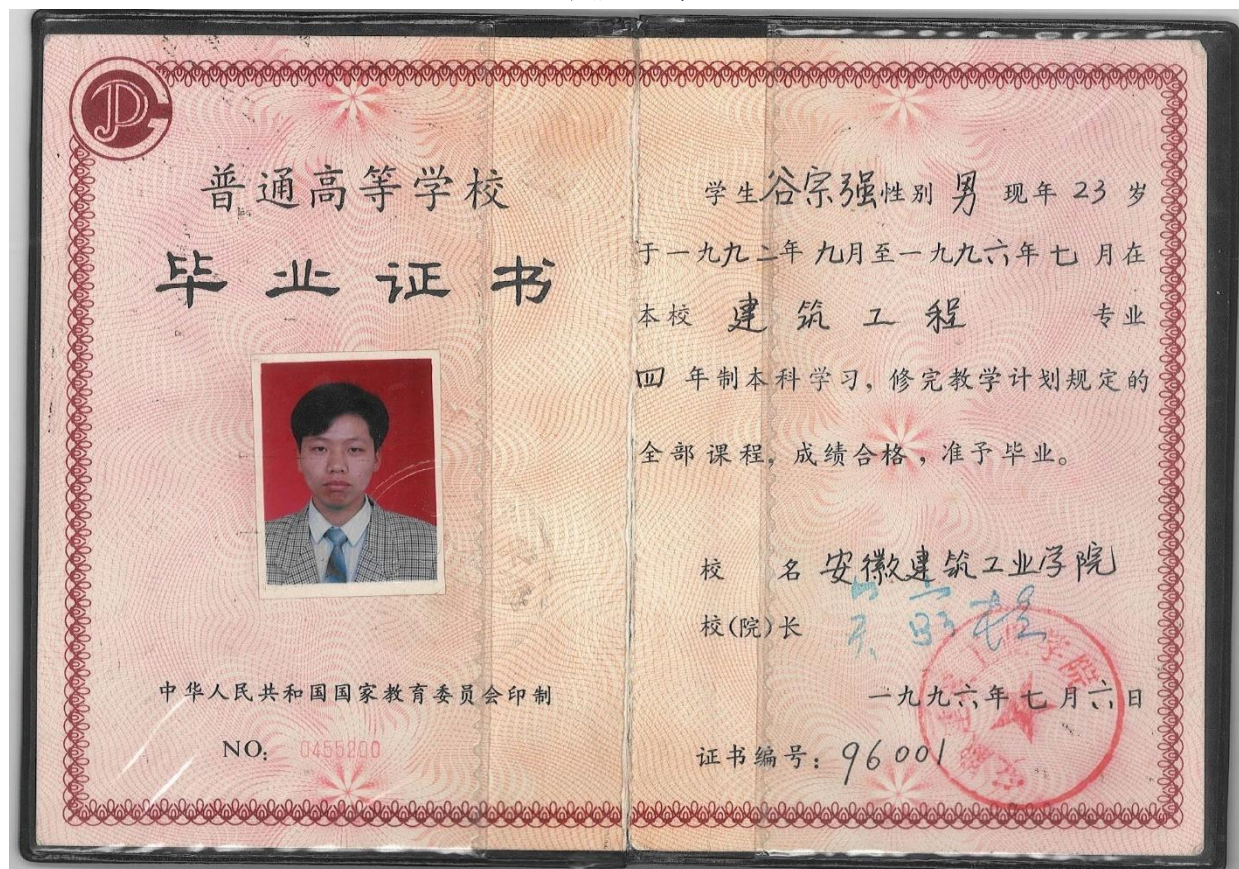 普通高等学校
毕业证书
中华人民共和国国家教育委员会印制
NO: 0455200
学生谷宗强性别 男 现年 23 岁
于一九九二年 九月至一九九六年 七 月在
本校 建筑工程 专业
四 年制本科学习，修完教学计划规定的
全部课程，成绩合格，准予毕业。
校 名 安徽建筑工业学院
校(院)长
一九九六年 七 月 六 日
证书编号：96001